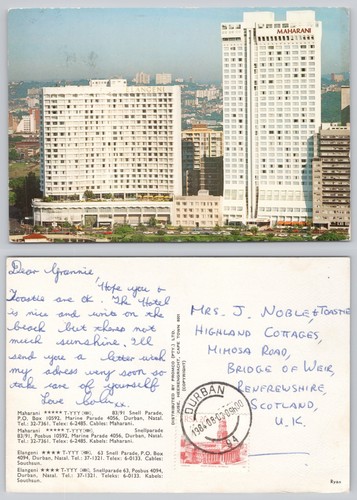 ELANGENI
MAHARANI
Dear Grannie,
Hope you &
Toastie are OK. The Hotel
is nice and write on the
beach but theres not
much sunshine. I'll
send you a letter with
my adress very soon so
take care of yourself
Love
Maharani ★★★★★ T-YYY 83/91 Snell Parade,
P.O. Box 10592, Marine Parade 4056, Durban, Natal.
Tel.: 32-7361. Telex: 6-2485. Cables: Maharani.
Maharani ★★★★★ T-YYY Snellparade
83/91, Posbus 10592, Marine Parade 4056, Durban, Natal.
Tel.: 32-7361. Teleks: 6-2485. Kabels: Maharani.
Elangeni ★★★★ T-YYY 63 Snell Parade, P.O. Box
4094, Durban, Natal. Tel.: 37-1321. Telex: 6-0133. Cables:
Southsun.
Elangeni ★★★★ T-YYY Snellparade 63, Posbus
4094, Durban, Natal. Tel.: 37-1321. Teleks: 6-0133. Kabels:
Southsun.
DISTRIBUTED BY PROTEA
(COPYRIGHT)
MRS. J. NOBLE & TOASTIE
HIGHLAND COTTAGES,
MIMOSA ROAD,
BRIDGE OF WEIR,
RENFREWSHIRE,
SCOTLAND,
U.K.
DURBAN
1984